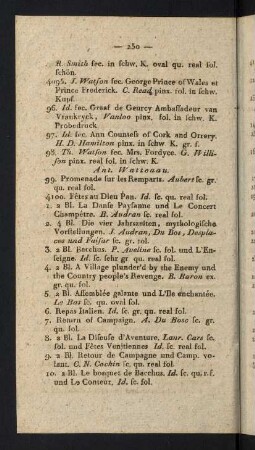 — 250 —
R. Smith sec. in schw. K. oval qu. real fol.
schön.
4095. J. Watson sec. George Prince of Wales et
Prince Frederick. C. Read pinx. fol. in schw.
Kupf.
96. Id. sec. Graaf de Geurcy Ambassadeur van
Vrankryck, Vanloo pinx. fol. in schw. K.
Probedruck.
97. Id. sec. Ann Countess of Cork and Orrery.
H. D. Hamilton pinx. in schw. K. gr. f.
98. Th. Watson sec. Mrs. Fordyce. G. Willi-
son pinx. real fol. in schw. K.
Ant. Watteau.
99. Promenade sur les Remparts. Aubert sc. gr.
qu. real. fol.
4100. Fêtes au Dieu Pan. Id. sc. qu. real fol.
1. 2 Bl. La Danse Paysanne und Le Concert
Champêtre. B. Audran sc. real. fol.
2. 4 Bl. Die vier Jahrszeiten, mythologische
Vorstellungen. J. Audran, Du Bos, Desplaces und Faisar sc. gr. fol.
3. 2 Bl. Bacchus. P. Aveline sc. fol. und L'En-
seigne. Id. sc. sehr gr. qu. real fol.
4. 2 Bl. A Village plunder'd by the Enemy und
the Country people's Revenge. B. Baron ex.
gr. qu. fol.
5. 2 Bl. Assemblée galante und L'Ile enchantée.
Le Bas sc. qu. oval fol.
6. Repas Italien. Id. sc. gr. qu. real fol.
7. Retour of Campaign. A. Du Bosc sc. gr.
qu. fol.
8. 2 Bl. La Diseuse d'Aventure. Laur. Cars sc.
fol. und Fêtes Venitiennes Id. sc. real fol.
9. 2 Bl. Retour de Campagne und Camp. vo-
lant. C. N. Cochin sc. qu. real fol.
10. 2 Bl. Le bosquet de Bacchus. Id. sc. qu. r. f.
und Le Conteur. Id. sc. fol.